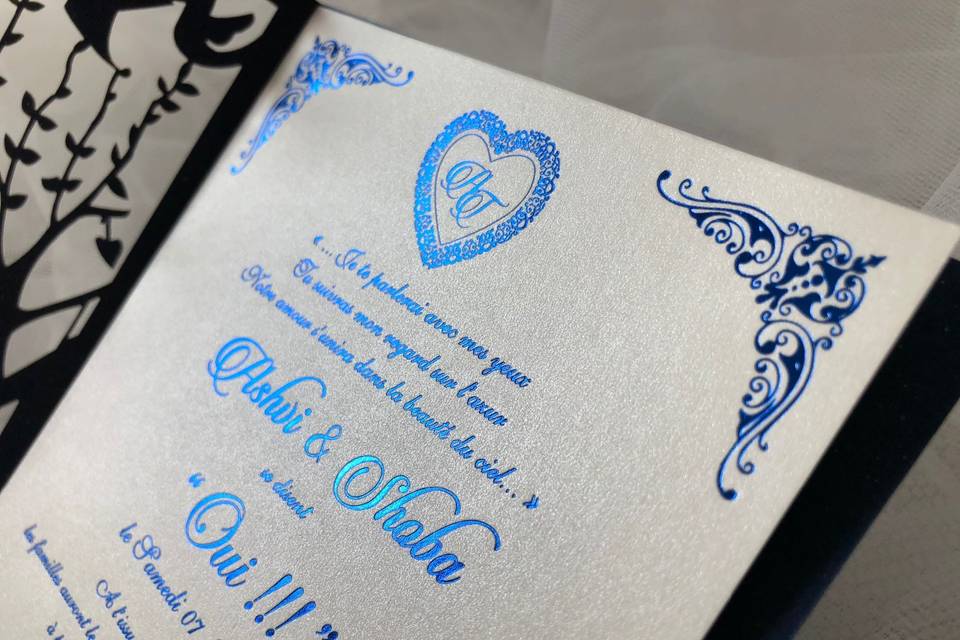 AT
“... Je te parlerai avec mes yeux
Tu suivras mon regard sur l'azur
Notre amour s'unira dans la beauté du ciel... ”
Ashvi & Shoba
se disent
“Oui !!!”
le Samedi 07
A l'issu
les familles auront le
à l